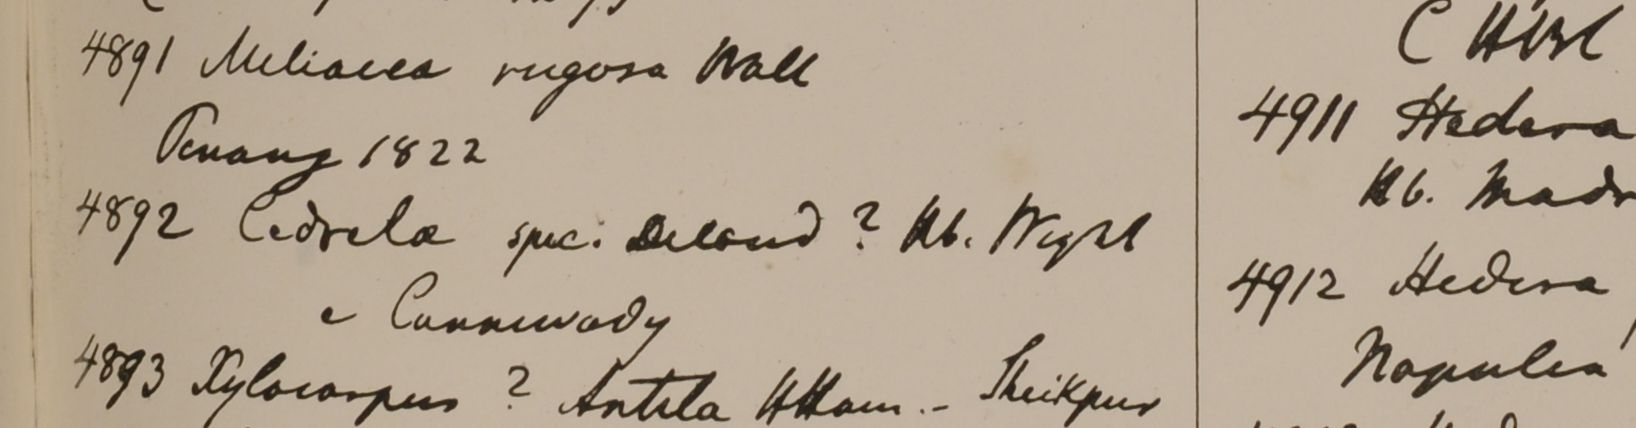 4891 Meliacea rugosa Wall
Penang 1822
4892 Cedrela spec. ? Hb. Wight
e Cunnewady
4893 Xylocarpus ? Antila HHam. - Sheikpur
C HBC
4911 Hedera
Hb. Madr
4912 Hedera
Napulia